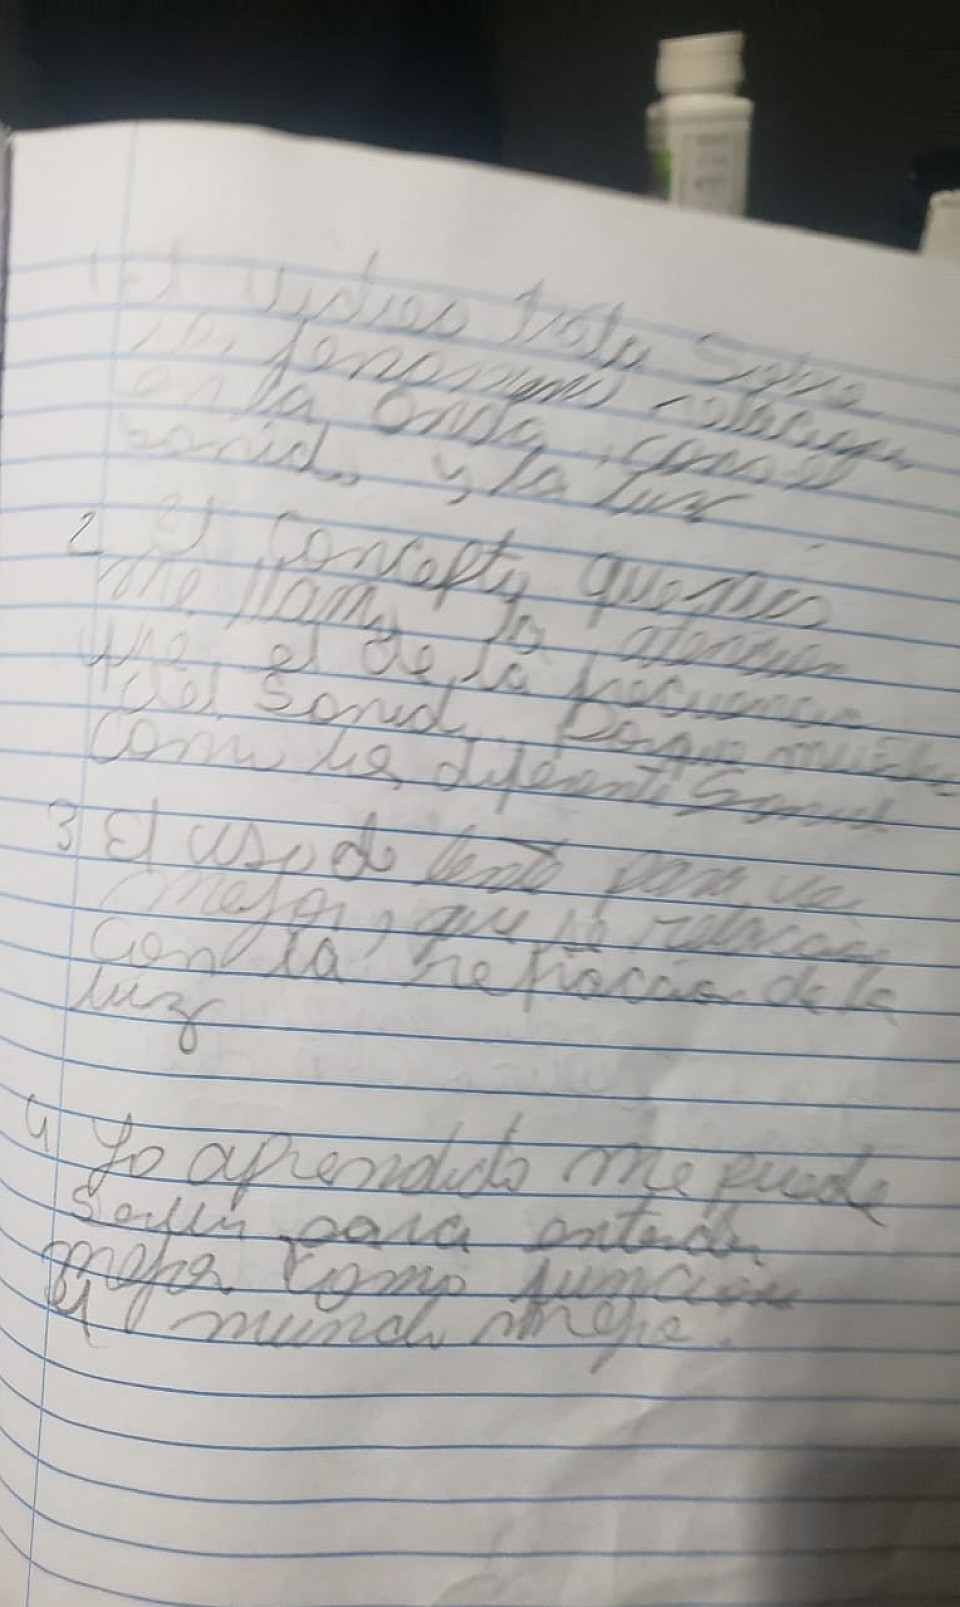 1 El video trata sobre
fenomeno relacion
en la onda, como el
sonido y la luz
2 El concepto que mas
me llamo la atencion
fue el de la frecuencia
del sonido, porque muestra
como los diferente sonid
3 El uso de lente para ver
mejor, que se relaciona
con la refraccion de la
luz
4 Lo aprendido me puede
servir para entender
mejor como funciona
el mundo mejor.